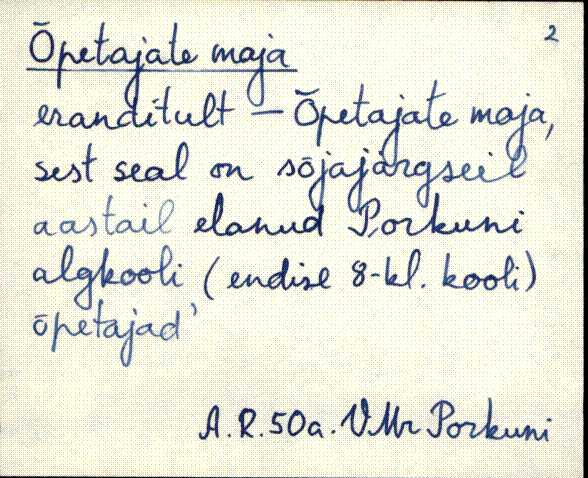 2
Õpetajate maja
eranditult – Õpetajate maja,
sest seal on sõjajärgseil
aastail elanud Porkuni
algkooli (endise 8-kl. kooli)
õpetajad'
A.R. 50a. VMr Porkuni